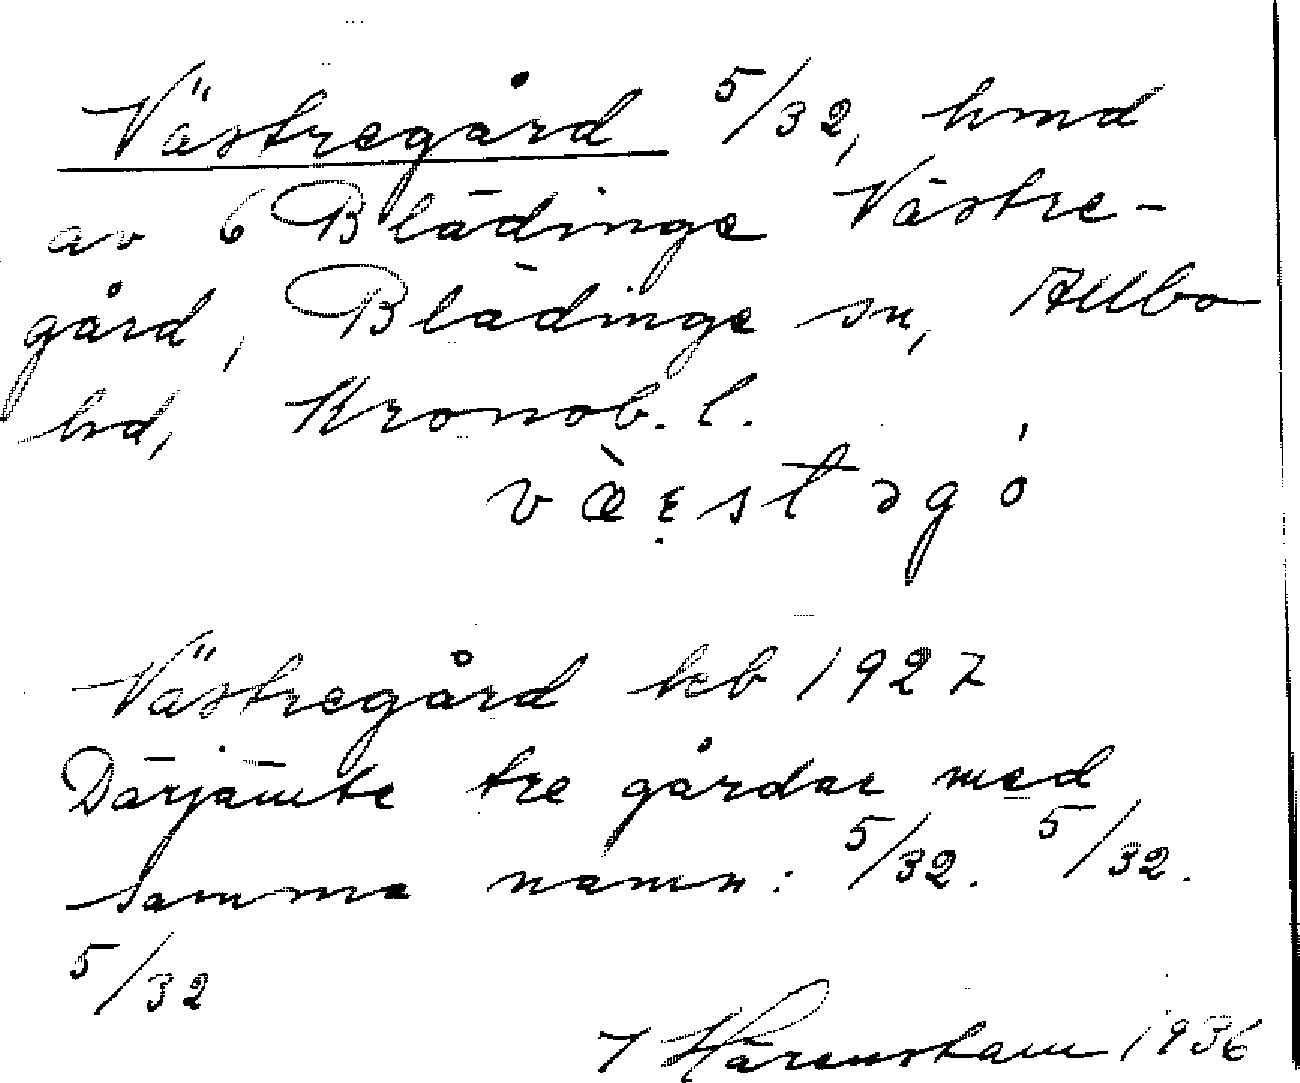 Västregård 5/32, hmd
av 6 Blädinge Västre-
gård, Blädinge sn, Allbo
hd, Kronob. l.
væ̀ꜱstəgó
Västregård kb 1927
Därjämte tre gårdar med
samma namn: 5/32. 5/32.
5/32
1936